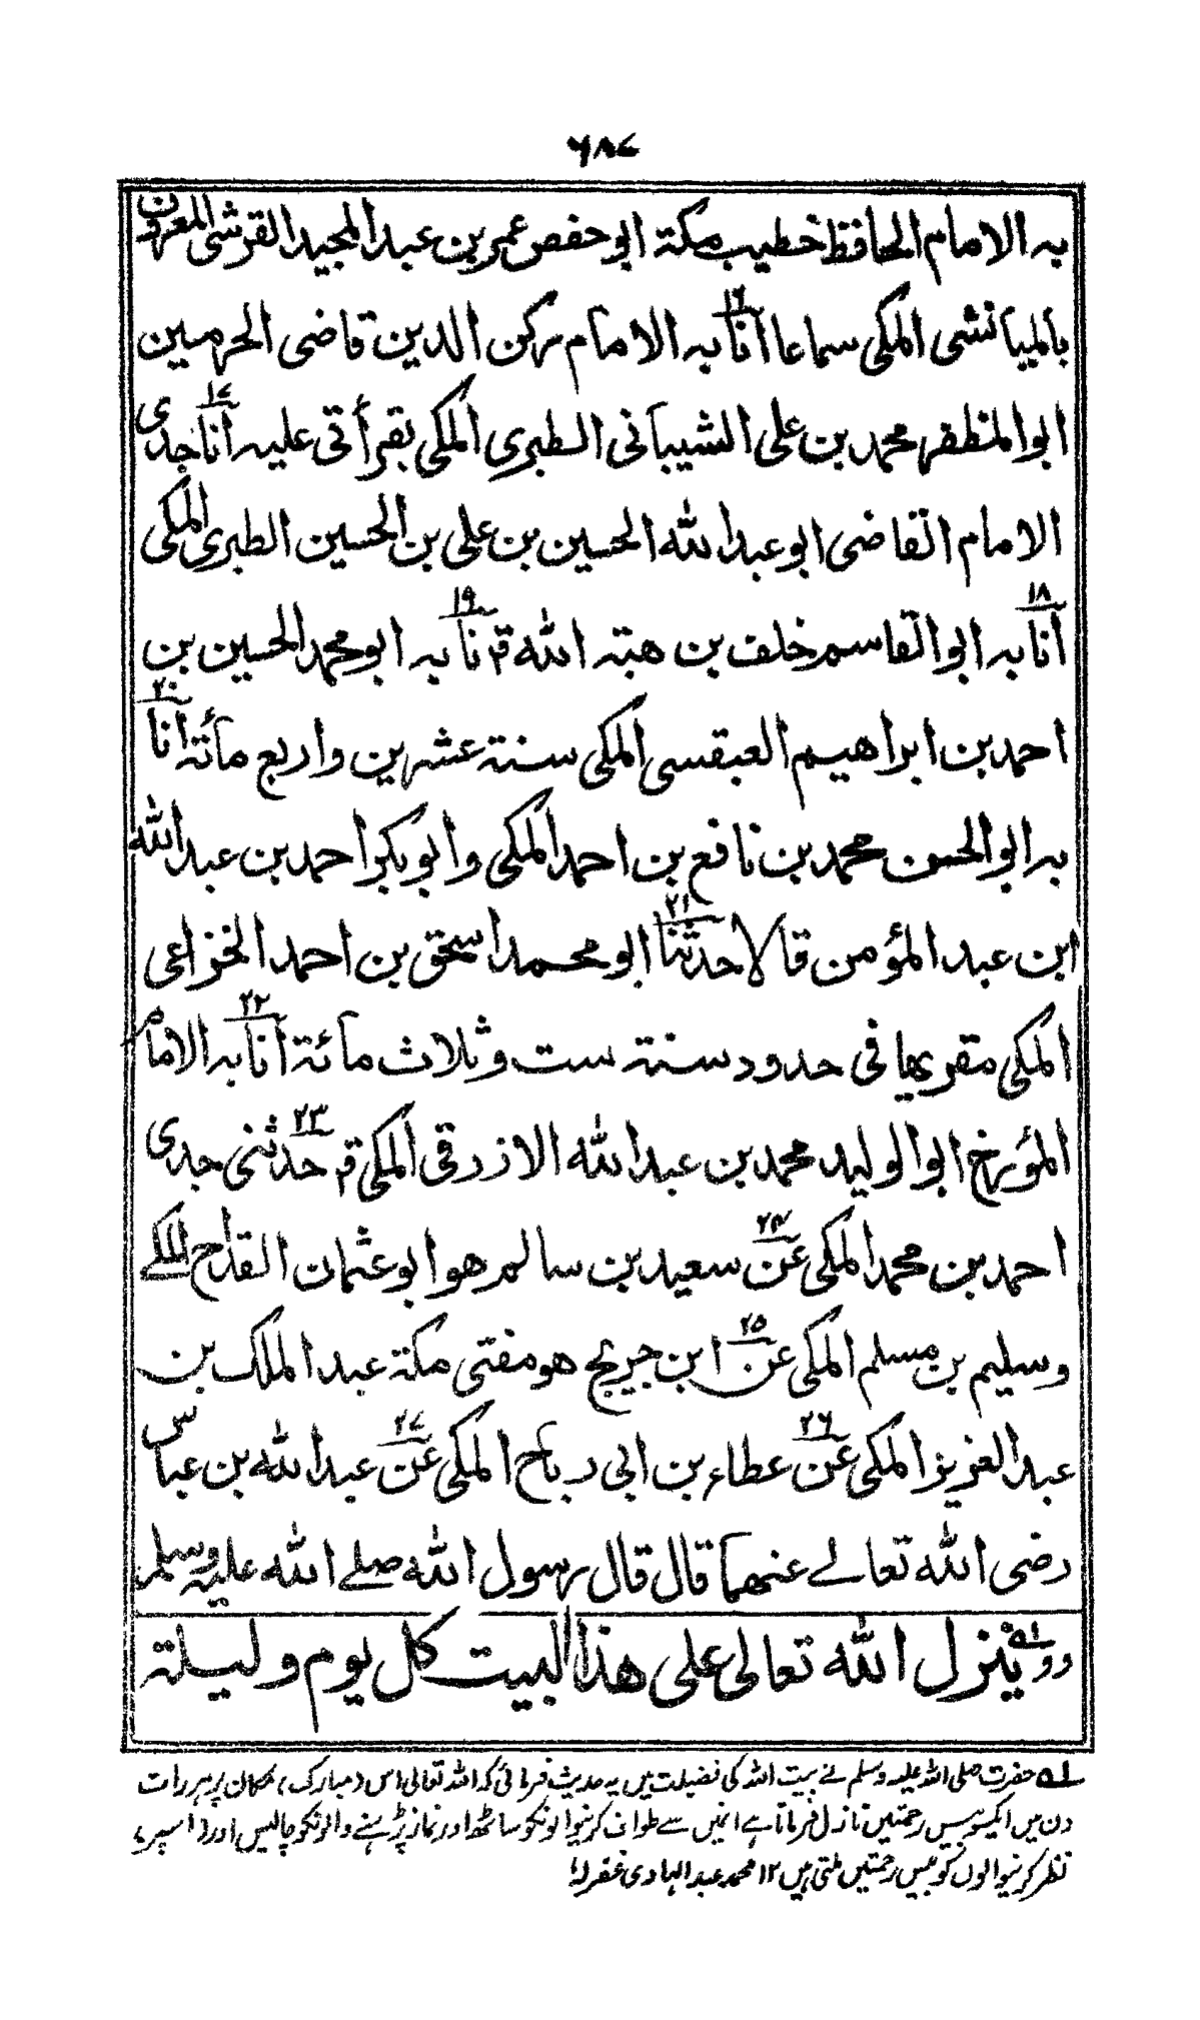 ۶۸۷
به الامام الحافظ خطيب مكة ابو حفص عمر بن عبد المجيد القرشى المعروف
بالميانشى المكى سماعا انا۱۶ به الامام ركن الدين قاضى الحرمين
ابو المظفر محمد بن على الشيبانى الطبرى المكى بقرأتى عليه انا۱۷ جدى
الامام القاضى ابو عبد الله الحسين بن على بن الحسين الطبرى المكى
انا۱۸ به ابو القاسم خلف بن هبته الله قم نا۱۹ به ابو محمد الحسين بن
احمد بن ابراهيم العبقسى المكى سنة عشرين واربع مأئة انا۲۰
به ابو الحسن محمد بن نافع بن احمد المكى وابو بكر احمد بن عبد الله
ابن عبد المؤمن قالا حدثنا۲۱ ابو محمد اسحق بن احمد الخزاعى
المكى مقريها فى حدود سنة ست وثلاث مائة انا۲۲ به الامام
المؤرخ ابو الوليد محمد بن عبد الله الازرقى المكى قم حدثنى۲۳ جدى
احمد بن محمد المكى عن۲۴ سعيد بن سالم هو ابو عثمان القداح المكى
وسليم بن مسلم المكى عن۲۵ ابن جريج هو مفتى مكة عبد الملك بن
عبد العزيز المكى عن۲۶ عطاء بن ابى رباح المكى عن۲۷ عبد الله بن عباس
رضى الله تعالے عنهما قال قال رسول الله صلے الله عليه وسلم
وو ينزل۱ الله تعالى على هذا البيت كل يوم وليلة
۱ حضرت صلی اللہ علیہ وسلم نے بیت اللہ کی فضیلت میں یہ حدیث فرمائی کہ اللہ تعالی اس (مبارک) مکان پر ہر رات
دن میں ایکسوبیس رحمتیں نازل فرماتا ہے انمیں سے طواف کرنیوالونکو ساٹھ اور نماز پڑہنے والونکو چالیس اور (اسپر)
نظر کرنیوالوں کو بیس رحمتیں ملتی ہیں ۱۲ محمد عبد الہادی غفرلہ